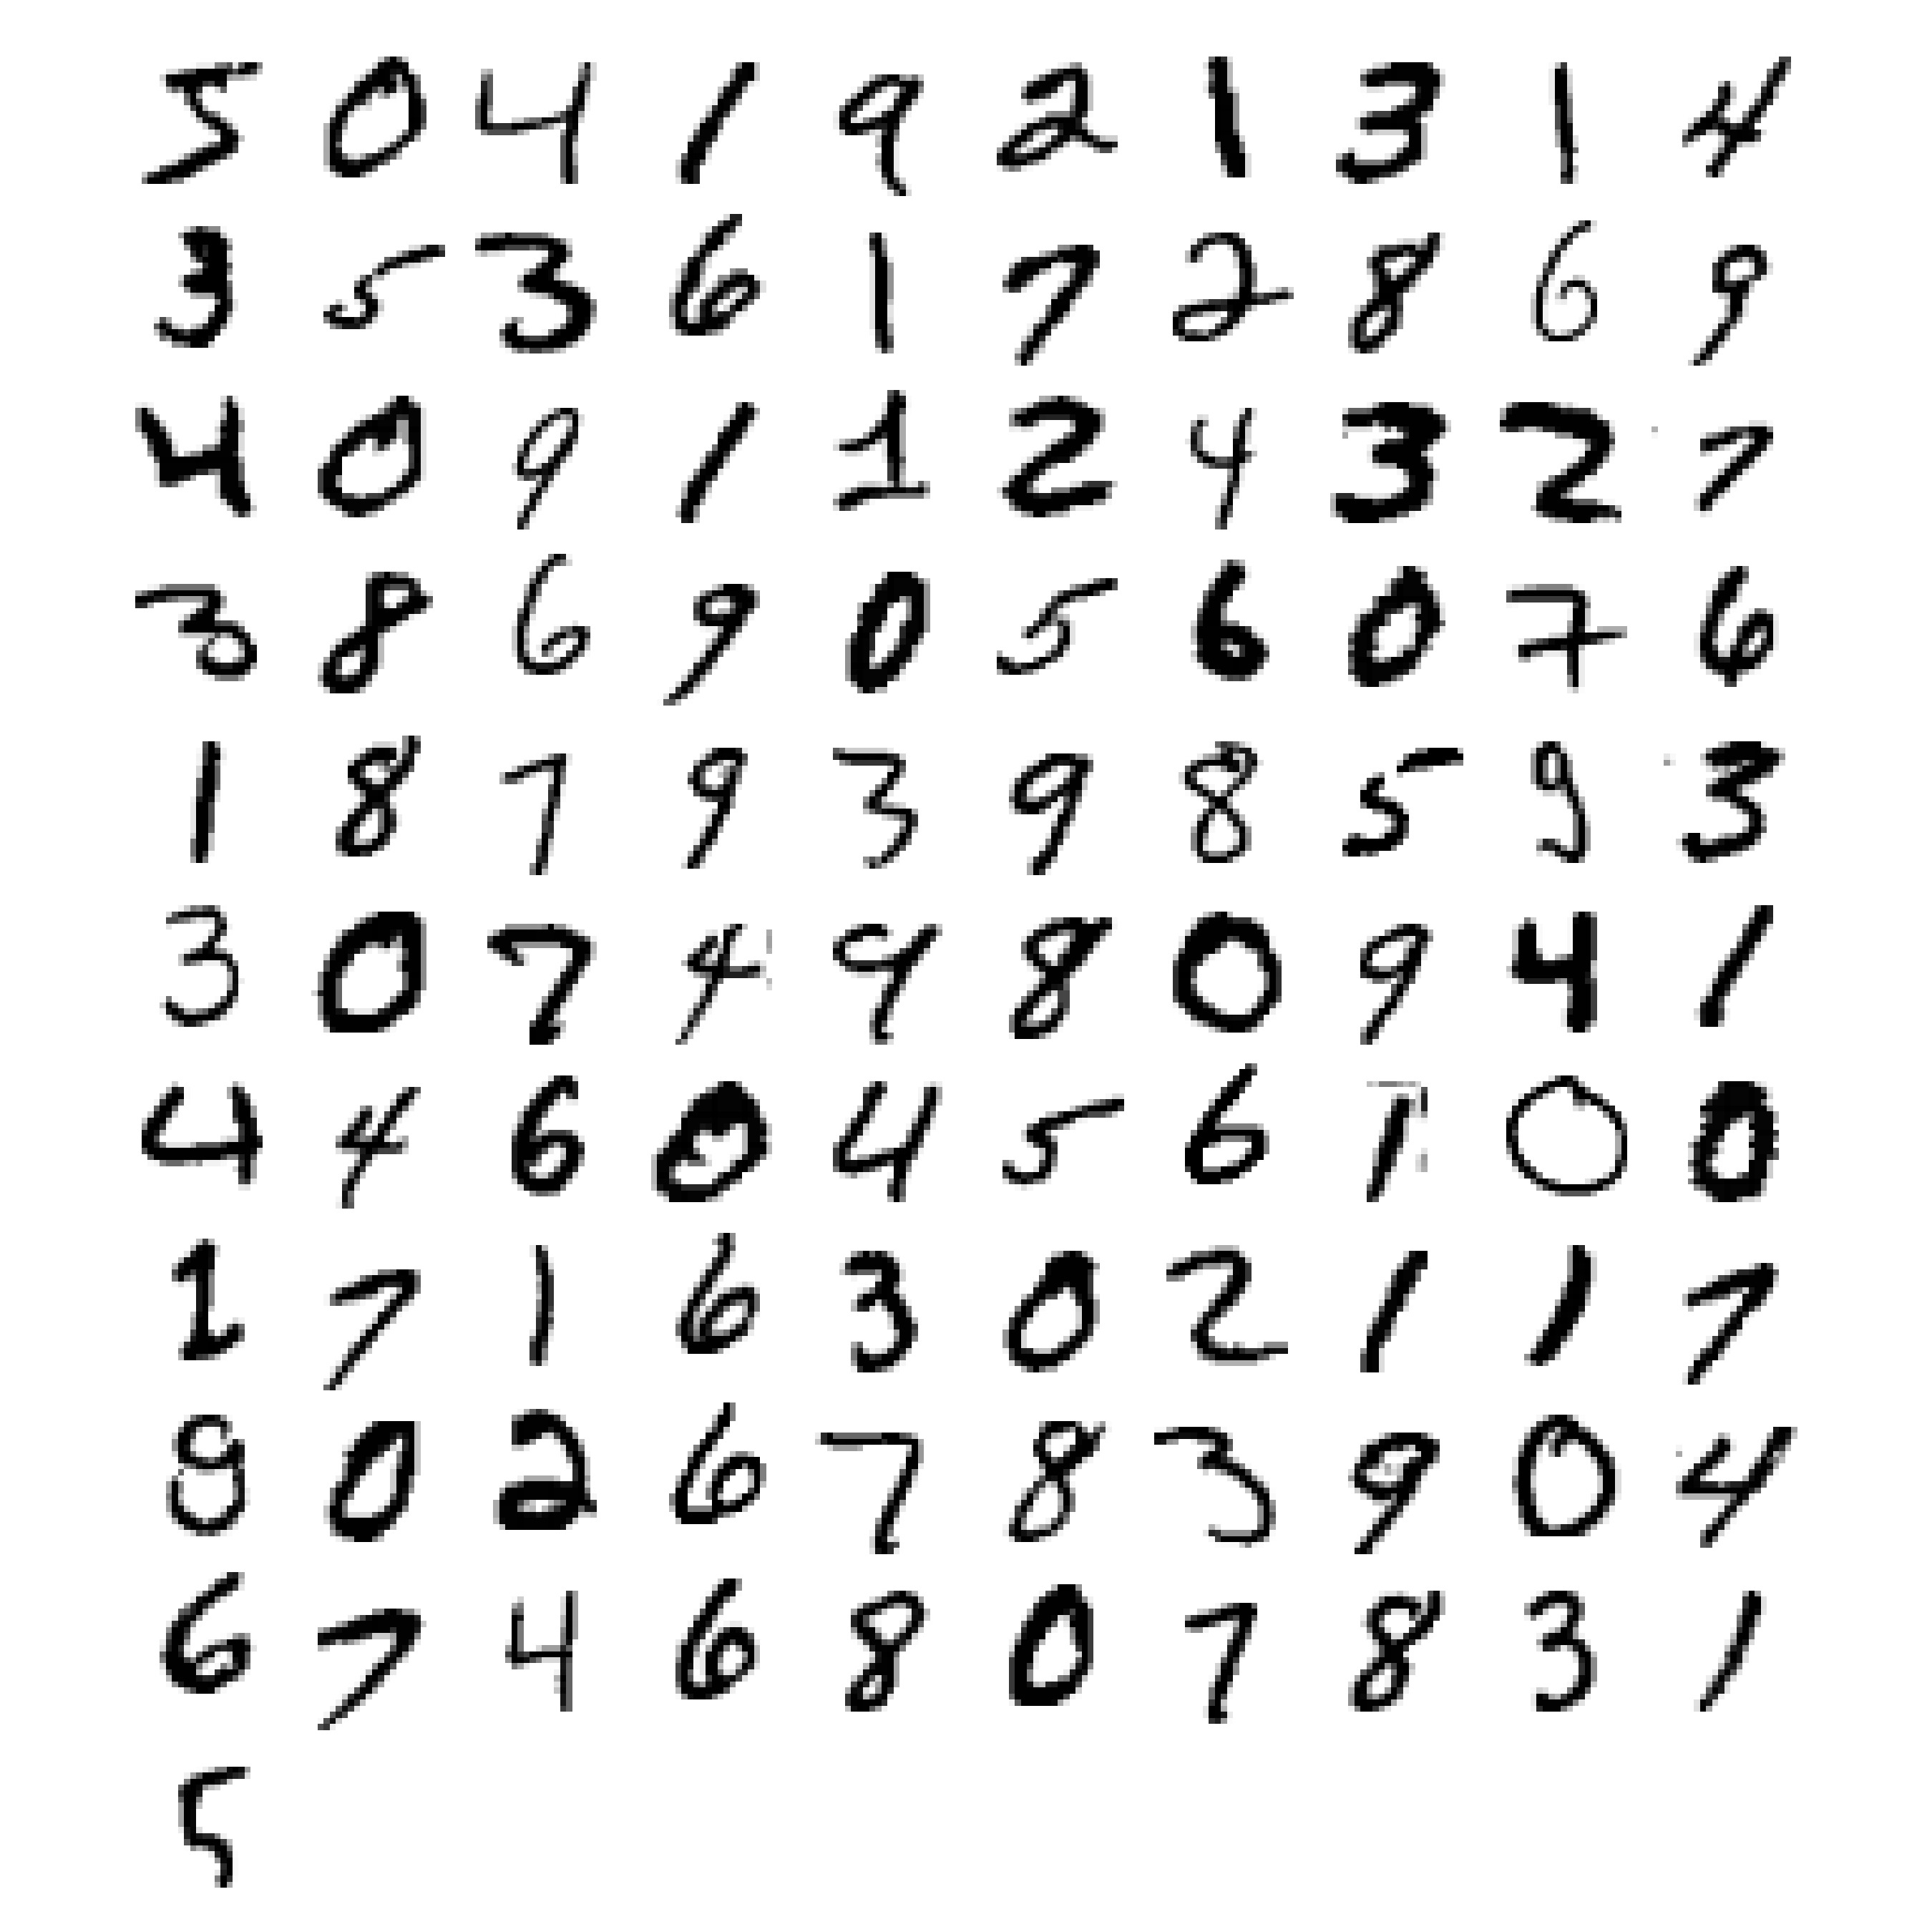 5 0 4 1 9 2 1 3 1 4
3 5 3 6 1 7 2 8 6 9
4 0 9 1 1 2 4 3 2 7
3 8 6 9 0 5 6 0 7 6
1 8 7 9 3 9 8 5 9 3
3 0 7 4 9 8 0 9 4 1
4 4 6 0 4 5 6 1 0 0
1 7 1 6 3 0 2 1 1 7
8 0 2 6 7 8 3 9 0 4
6 7 4 6 8 0 7 8 3 1
5